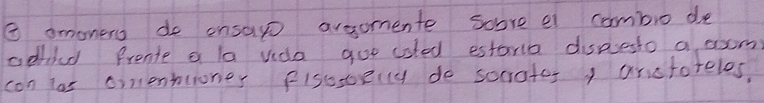 @ amanera de ensayo argomente sobre el cambio de
actitud frente a la vida que usted estaria dispuesto a asom
con las orientaciones filosofily de socrates y aristoteles.